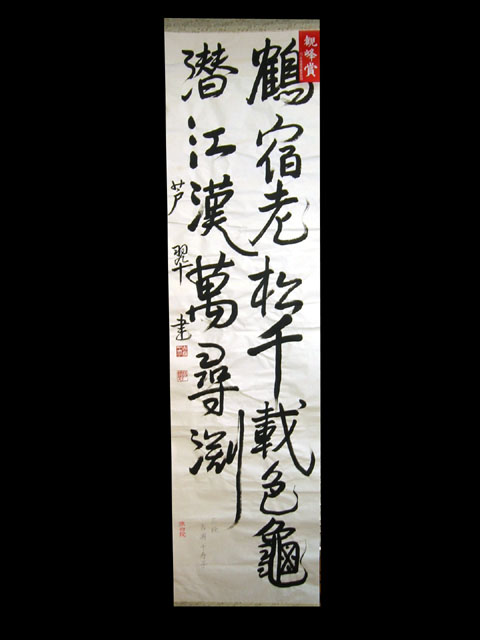 観峰賞
鶴宿老松千載色龜
潜江漢萬尋渕
芦翠書